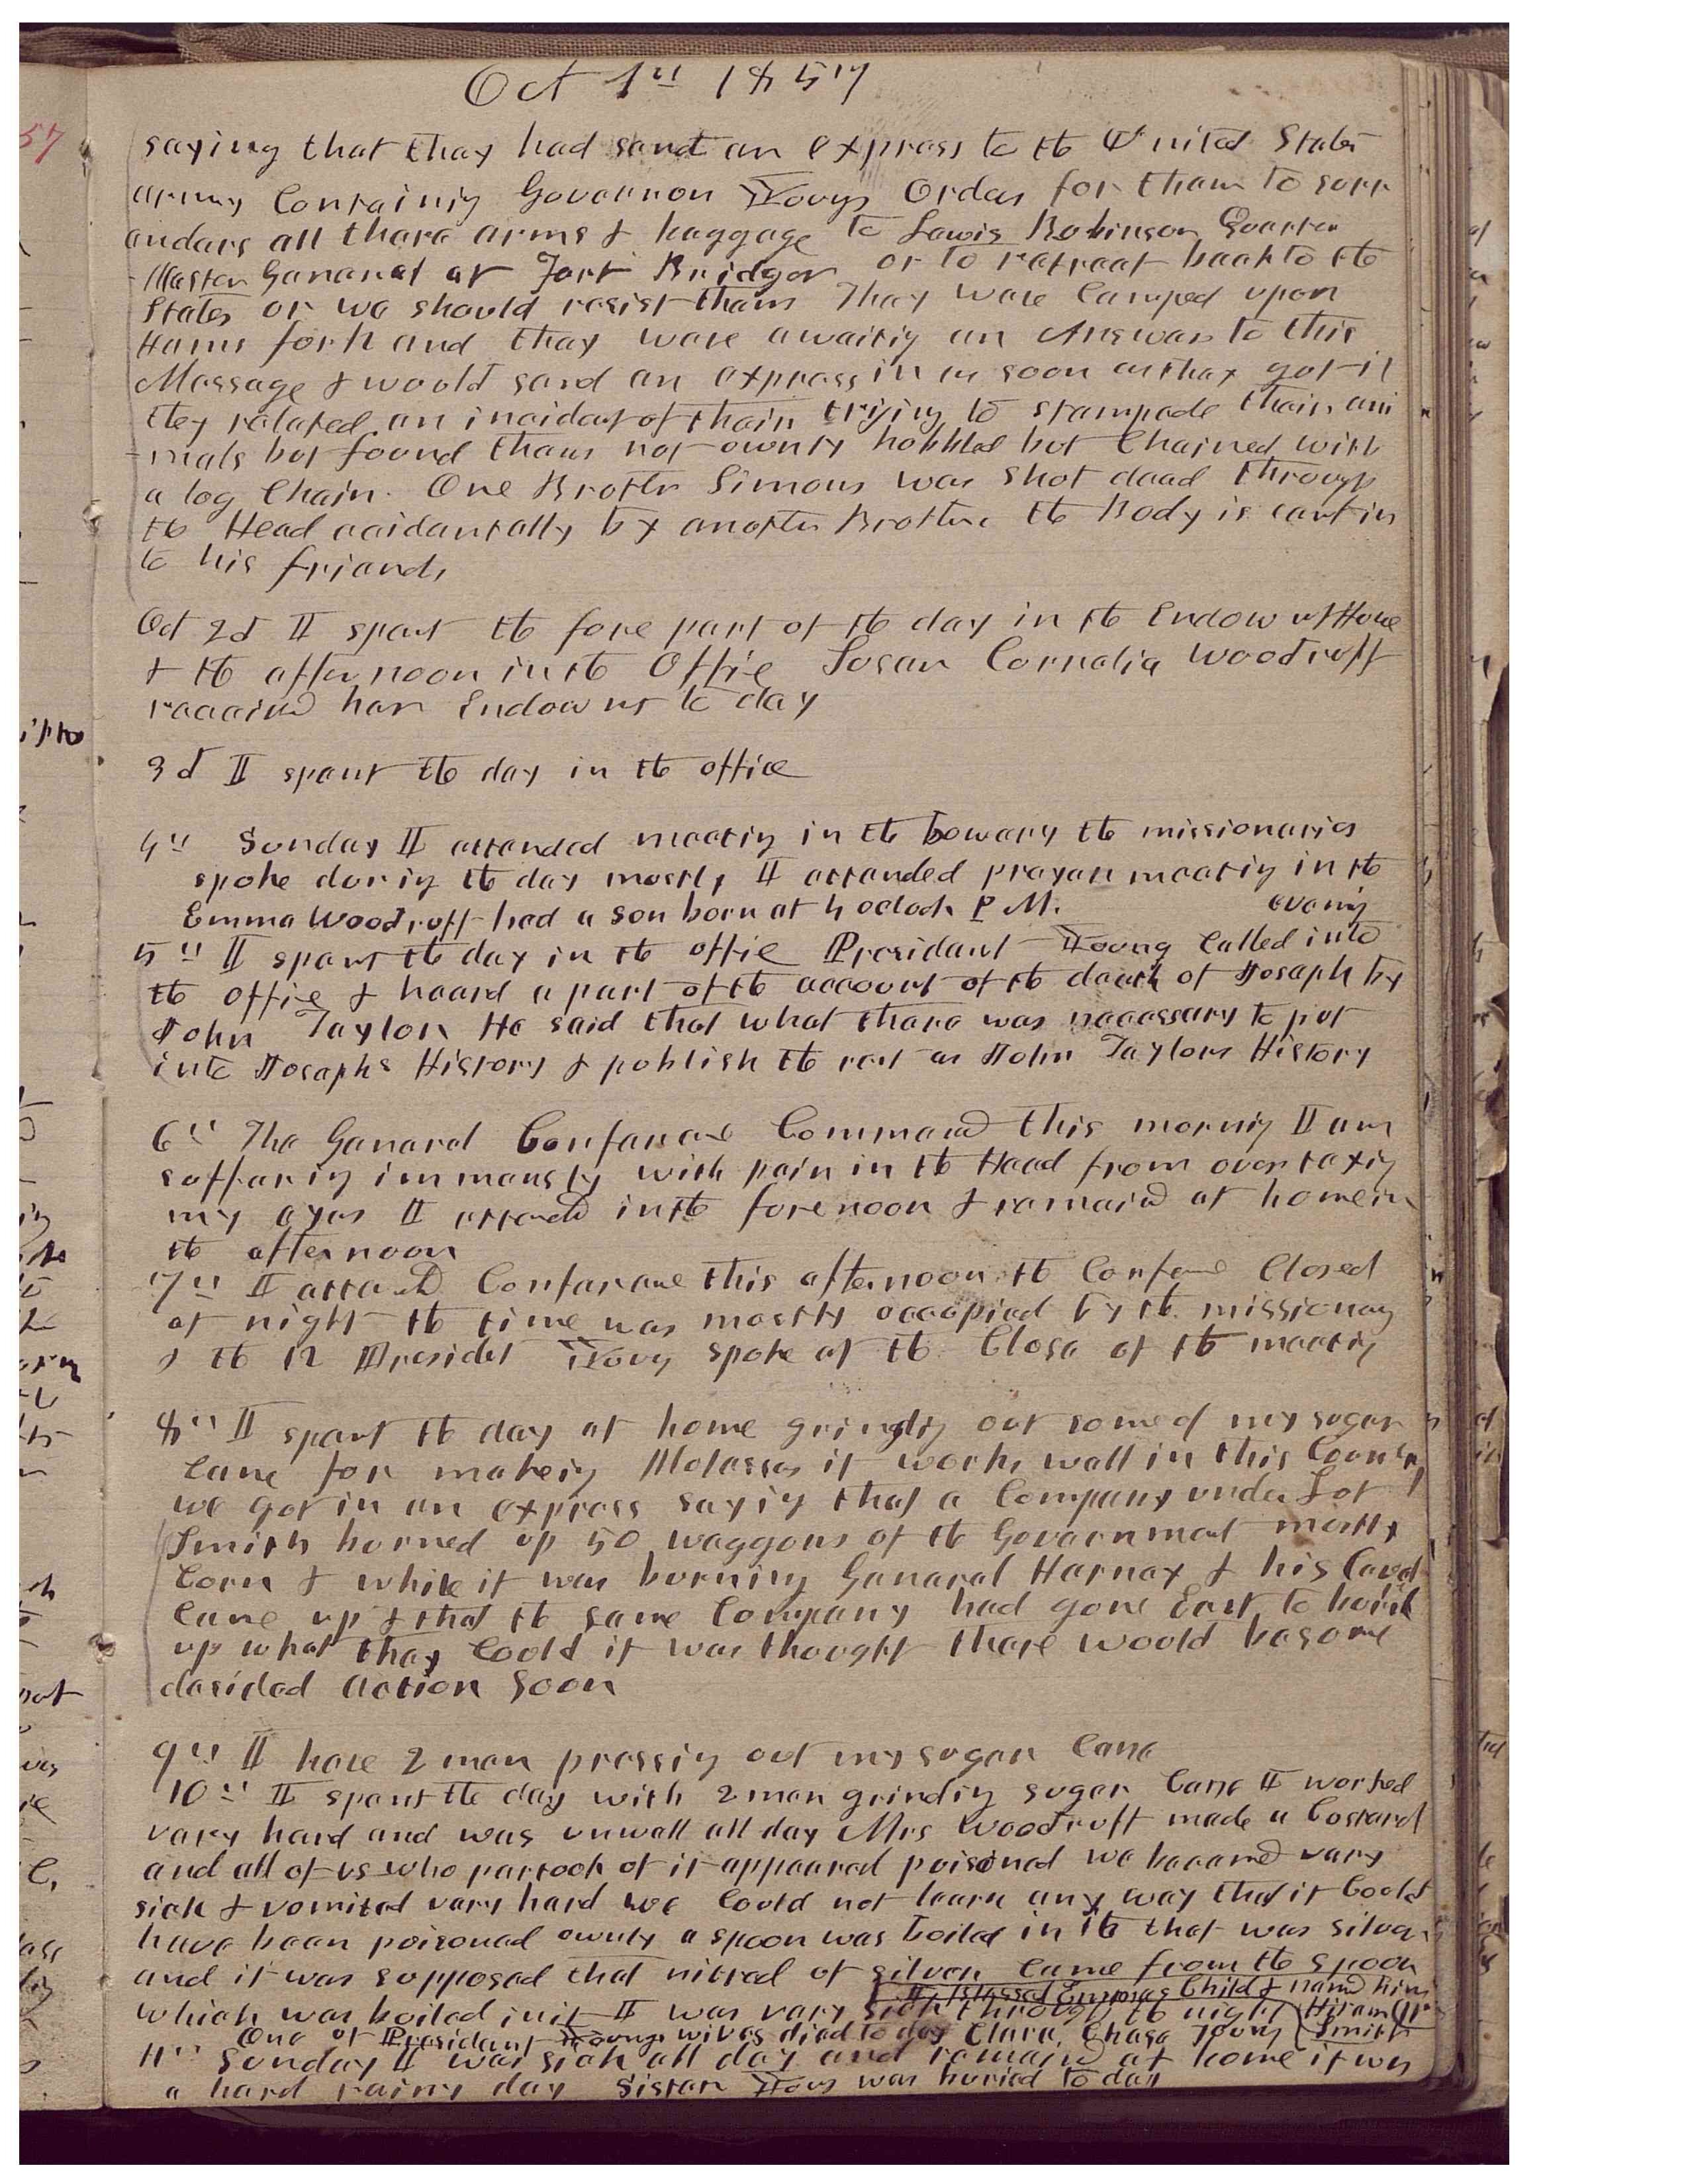 Oct 1st 1857
saying that thay had sent an express to the United States
army Containing Governor Youngs Orders for them to surr
enders all there arms & baggage to Lewis Robinson Quarter
-Master General at Fort Bridger or to retreat back to the
States or we should resist them They ware Camped upon
Hams fork and thay ware awaiting an Answer to this
Message & would send an express in as soon as thay got it
they related an incident of their trying to stampede their ani
-mals but found them not ownly hobbled but Chained with
a log Chain. One Brother Simons was shot dead through
the Head accidentally by another Brother the Body is sent in
to his friends
Oct 2d I spent the fore part of the day in the Endowmt House
& the afternoon in the Office Susan Cornelia Woodruff
received her Endowmts to day
3d I spent the day in the office
4th Sunday I attended meeting in the bowery the missionaries
spoke during the day mostly I attended prayer meeting in the
evening
Emma Woodruff had a son born at 4 oclock P M.
5th I spent the day in the office President Young Called into
the office & heard a part of the account of the death of Joseph by
John Taylor He said that what there was necessary to put
into Josephs History & publish the rest as John Taylors History
6th The General Conference Commencd this morning I am
suffering immensly with pain in the Head from over taxing
my eyes I attend in the forenoon & remaind at home in
the afternoon
7th I attend Conference this afternoon the Confere Closed
at night the time was mostly occupied by the missionary
& the 12 President Young spoke at the Close of the meeting
8th I spent the day at home grinding out some of my sugar
Cane for makeing Molasses it works well in this Country
we got in an express saying that a Company under Lot
Smith burned up 50 waggons of the Government mostly
Corn & while it was burning General Harney & his Caval
Came up & that the same Company had gone East to burn
up what thay Could it was thought there would be some
desided action soon
9th I have 2 men pressing out my sugar Cane
10th I spent the day with 2 men grinding sugar Cane I worked
vary hard and was unwell all day Mrs Woodruff made a Costard
and all of us who partook of it appeared poisoned we became vary
sick & vomited vary hard we Could not learn any way that it Could
have been poisoned ownly a spoon was boiled in it that was silver
and it was supposed that nitred of silver Came from the spoon
which was boiled in it I was vary sick through the night
I blessed Emmas Child & namd him
Hiram
Smith
One of President Youngs wives died to day Clara Chase Young
11th Sunday I was sick all day and remaind at home it was
a hard rainy day Sister Young was buried to day